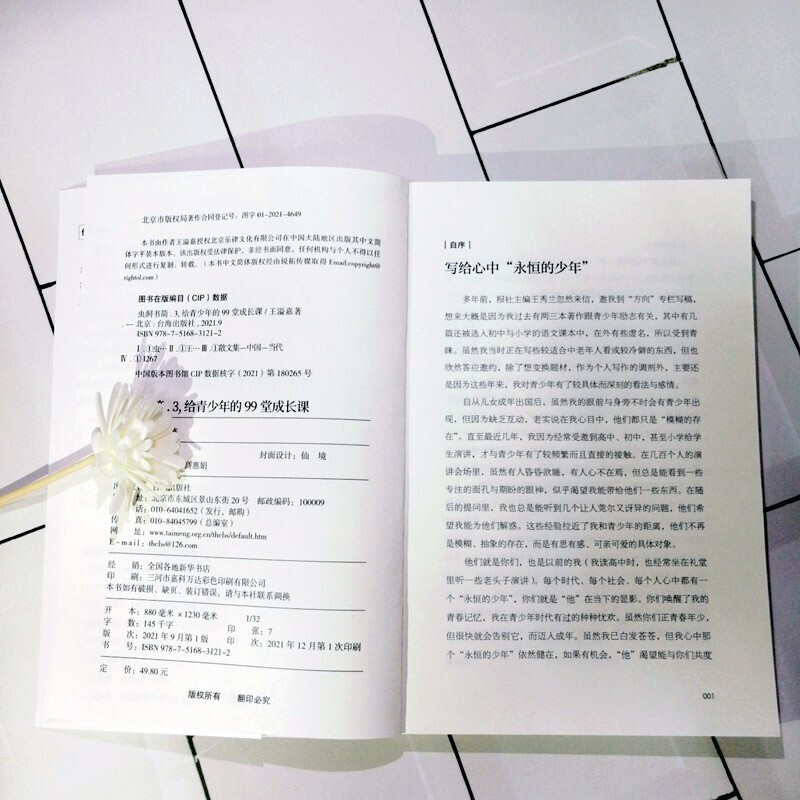 北京市版权局著作合同登记号：图字 01-2021-4649
本书由作者王溢嘉授权北京乐律文化有限公司在中国大陆地区出版其中文简
体字平装本版本。该出版权受法律保护，非经书面同意，任何机构与个人不得以任
何形式进行复制、转载。（本书中文简体版权经由锐拓传媒取得 Email:copyright@
rightol.com）
图书在版编目（CIP）数据
虫洞书简 . 3, 给青少年的 99 堂成长课 / 王溢嘉著
. -- 北京 : 台海出版社, 2021.9
ISBN 978-7-5168-3121-2
Ⅰ . ①虫… Ⅱ . ①王… Ⅲ . ①散文集－中国－当代
Ⅳ . ①I267
中国版本图书馆 CIP 数据核字（2021）第 180265 号
. 3, 给青少年的 99 堂成长课
封面设计：仙 境
惠娟
出版社
址：北京市东城区景山东街 20 号 邮政编码：100009
话：010-64041652（发行，邮购）
传 真：010-84045799（总编室）
网 址：www.taimeng.org.cn/thcbs/default.htm
E-mail：thcbs@126.com
经 销：全国各地新华书店
印 刷：三河市嘉科万达彩色印刷有限公司
本书如有破损、缺页、装订错误，请与本社联系调换
开 本：880 毫米 × 1230 毫米 1/32
字 数：145 千字 印 张：7
版 次：2021 年 9 月第 1 版 印 次：2021 年 12 月第 1 次印刷
书 号：ISBN 978-7-5168-3121-2
定 价：49.80 元
版权所有 翻印必究
自序
写给心中“永恒的少年”
多年前，报社主编王秀兰忽然来信，邀我到“方向”专栏写稿，
想来大概是因为我过去有两三本著作跟青少年励志有关，其中有几
篇还被选入初中与小学的语文课本中，在外有些虚名，所以受到青
睐。虽然我当时正在写些较适合中老年人看或较冷僻的东西，但也
欣然答应邀约，除了想变换题材，作为个人写作的调剂外，主要还
是因为这些年来，我对青少年有了较具体而深刻的看法与感情。
自从儿女成年出国后，虽然我的眼前与身旁不时会有青少年出
现，但因为缺乏互动，老实说在我心目中，他们都只是“模糊的存
在”。直至最近几年，我因为经常受邀到高中、初中，甚至小学给学
生演讲，才与青少年有了较频繁而且直接的接触。在几百个人的演
讲会场里，虽然有人昏昏欲睡，有人心不在焉，但总是能看到一些
专注的面孔与期盼的眼神，似乎渴望我能带给他们一些东西。在随
后的提问里，我也总是能听到几个让人莞尔又讶异的问题，他们希
望我能为他们解惑。这些经验拉近了我和青少年的距离，他们不再
是模糊、抽象的存在，而是有思有感、可亲可爱的具体对象。
他们就是你们，也是以前的我（我读高中时，也经常坐在礼堂
里听一些老头子演讲）。每个时代、每个社会、每个人心中都有一
个“永恒的少年”，你们就是“他”在当下的显影。你们唤醒了我的
青春记忆，我在青少年时代有过的种种忧欢。虽然你们正青春年少，
但很快就会告别它，而迈入成年。虽然我已白发苍苍，但我心中那
个“永恒的少年”依然健在，如果有机会，“他”渴望能与你们共度
001